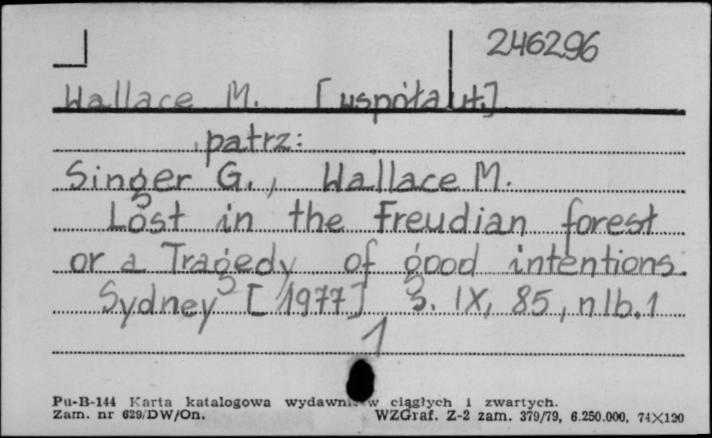 246296
Wallace M. [współaut.]
patrz:
Singer G., Wallace M.
Lost in the Freudian forest
or a Tragedy of good intentions.
Sydney [1977] S. IX, 85, nlb. 1
1
Pu-B-144 Karta katalogowa wydawn w ciągłych i zwartych.
Zam. nr 629/DW/On. WZGraf. Z-2 zam. 379/79, 6.250.000, 74X120